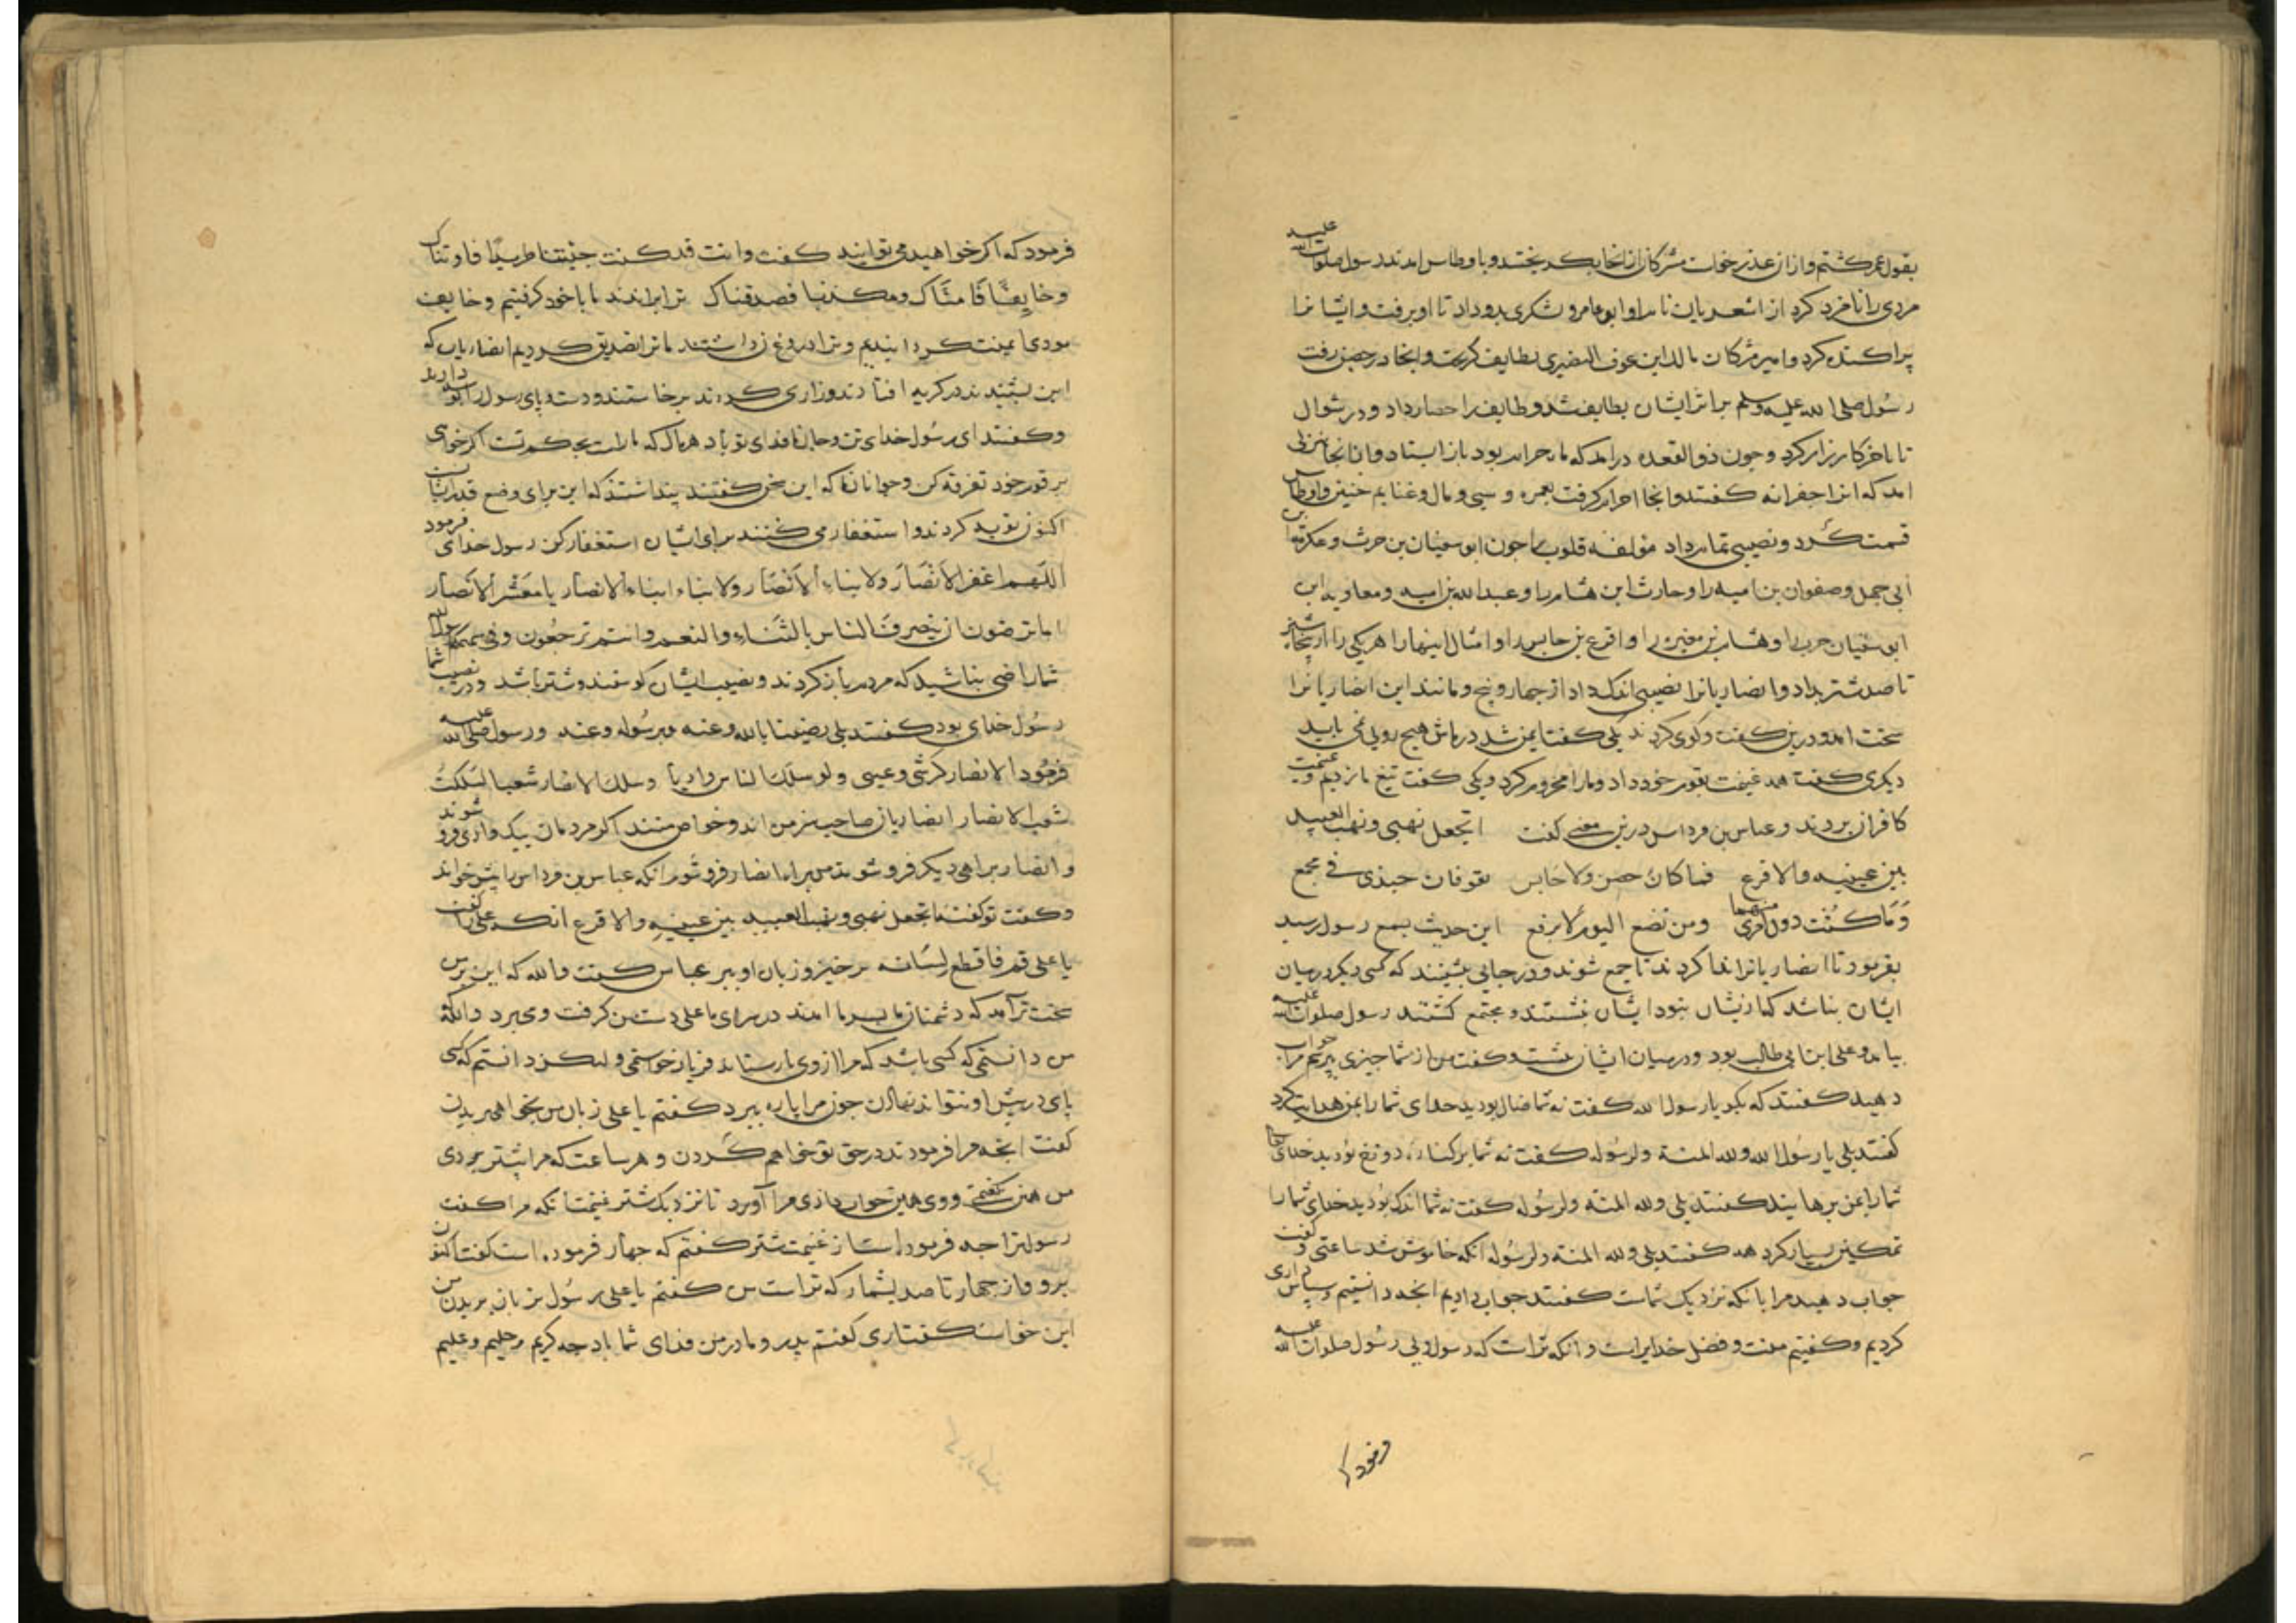 بقول عمر کشتم و ازان عذر خواست مشرکان از انجا بکریختند و باوطاس امدند رسول صلوات الله علیه
مردی را نامزد کرد از اشعریان نام او ابو عامر و لشکری بدو داد تا او برفت و ایشانرا
پراکنده کرد و امیر مشرکان مالک ابن عوف النضیری بطایف کریخت و انجا در حصن رفت
رسول صلی الله علیه وسلم بر اثر ایشان بطایف شد و طایف را حصار داد و در شوال
تا باخر کارزار کرد و جون ذوالقعده درامد که ماه حرام بود باز ایستاد و از انجا بمنزلی
امد که انرا جعرانه کفتند و انجا احرام کرفت بعمره و سبی و مال و غنایم حنین و اوطاس
قسمت کرد و نصیبی تمام داد مولفه قلوب را جون ابو سفیان بن حرث و عکرمة بن
ابی جهل و صفوان بن امیه را و حارث ابن هشام را و عبدالله بن امیه و معاویه ابن
ابو سفیان حرب را و هشام بن مغیره را و اقرع بن حابس را و امثال اینها را هریکی را از پنجاه شتر
تا صد شتر بداد و انصاریانرا نصیبی اندک داد از جهار و پنج و مانند این انصاریانرا
سخت امد و درین کفت و کوی کردند یکی کفت ایمن شد در ماش هیچ روی نمی باید
دیکری کفت همه غنیمت بقوم خود داد و مارا محروم کرد و یکی کفت تیغ ما زدیم و غنیمت
کافران بردند و عباس بن مرداس درین معنی کفت اتجعل نهبی و نهب العبید
بین عیینه والاقرع فما کان حصن ولا حابس یفوقان جدی فی مجمع
وَمَا کُنْت دون امری منهما ومن تضع الیوم لا یرفع این حدیث بسمع رسول رسید
بفرمود تا انصاریانرا ندا کردند تا جمع شوند و در جایی بنشینند که کسی دیکر در میان
ایشان نباشد که از یشان نبود ایشان بنشستند و مجتمع کشتند رسول صلوات الله علیه
بیامد و علی ابن ابی طالب بود و در میان ایشان بنشست و کفت من از شما جیزی بپرسم مرا جواب
دهید کفتند که بکو یا رسول الله کفت نه شما ضال بودید خدای شما را بمن هدایت کرد
کفتند بلی یا رسُول الله ولله المنة ولرسُوله کفت نه شما بر کناره دوزخ بُودید خدای تعالی
شما را بمن برهانید کفتند بلی ولله المنه ولرسُوله کفت نه شما اندک بُودید خدای شما را
تمکین بسیار کرد همه کفتند بلی ولله المنه ولرسُوله انکه خاموش شد ساعتی و کفت
جواب دهید مرا بانکه نزدیک شماست کفتند جواب دادیم انجه دانستیم و سپاس داری
کردیم و کفتیم منت و فضل خدایراست و انکه تراست که رسول ویی رسُول صلوات الله علیه
فرمود که
فرمود که اکر خواهید می توانید کفت وانت قد کنت جیٔتنا طریدًا فاویناک
وخایفًا فَامنَّاک ومکذبا فصدقناک ترا براندند ما با خود کرفتیم و خایف
بودی ایمنت کردانیدیم و ترا دروغ زن داشتند ما ترا تصدیق کردیم انصاریان که
این بشنیدند در کریه افتادند و زاری کردند برخاستند و دست و پای رسول را بوسه دادند
و کفتند ای رسُول خدای تن و جان ما فدای تو باد هر مال که ماراست بحکم تست اکر خواهی
بر قوم خود تفرقه کن و جوانان ما که این سخن کفتند پنداشتند که این برای وضع قدر ایشانست
اکنون توبه کردند و استغفار می کنند برای ایشان استغفار کن رسول خدای فرمود
اللَهم اغفر الاَنْصَارَ ولابناء الاَنْصَار ولابناء ابناء الانصار یا مَعْشَر الاَنْصَار
اما ترضون ان ینصرفَ الناس بالشَاءِ والنعم وانتم ترجعُون وفی سهمکم رسول الله
شما راضی نباشید که مردم باز کردند و نصیب ایشان کوسفند و شتر باشد و در نصیب شما
رسُول خدای بود کفتند بلی رضینا بالله وعنه وبرسُوله وعنه و رسول صلی الله علیه
فرمُود الانصار کرشی وعیبتی ولو سلکَ الناس وادیاً وسلک الانصار شعبا لَسَلَکتُ
شعب الانصار انصاریان صاحب سر من اند و خواص منند اکر مردمان بیک وادی فرو شوند
و انصار براهی دیکر فرو شوند من براه انصار فرو شوم انکه عباس بن مرداس را پیش خواند
و کفت تو کفتهٔ اتجعل نهبی ونهب العبید بین عیینهِ والاقرع انکه علی را کفت
یا علی قم فاقطع لسَانه برخیز و زبان او ببر عباس کفت والله که این بر من
سخت تر آمد که دشمنان ما بسر ما امدند در سرای ما علی دست من کرفت و می برد والله
من دانستمی که کسی باشد که مرا از وی بازستاند فریاد خواستمی ولیکن دانستم که کسی
پای در پیش او نتواند نهادن جون مرا پاره ببرد کفتم یا علی زبان من بخواهی بریدن
کفت انجه مرا فرمودند در حق تو خواهم کردن و هر ساعت که مرا پیشتر بردی
من همین کفتمی و وی همین جواب دادی مرا آورد تا نزدیک شتر غنیمت انکه مرا کفت
رسول ترا جه فرموده است از غنیمت شتر کفتم که جهار فرموده است کفت اکنون
برو و از جهار تا صد بشمار که تراست من کفتم یا علی رسُول بزبان بریدن من
این خواست کفت اری کفتم پدر و مادر من فدای شما باد جه کریم و حلیم و علیم